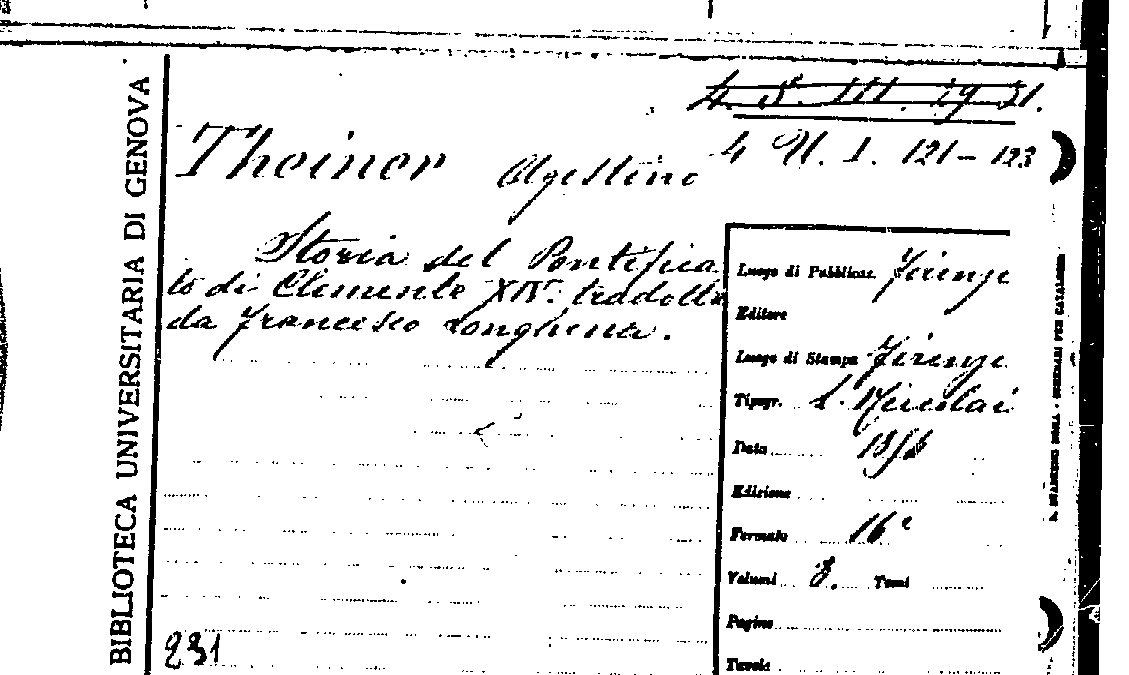 BIBLIOTECA UNIVERSITARIA DI GENOVA
4. S. III. 19 31.
4 U. I. 121-123
Theiner Agostino
Storia del Pontifica
to di Clemente XIV. tradotta
da Francesco Longhena.
Luogo di Pubblicaz. Firenze
Editore
Luogo di Stampa Firenze
Tipogr.
Data
Edizione
Formato 16°
Volumi 3. Tomi
Pagine
Tavole
231